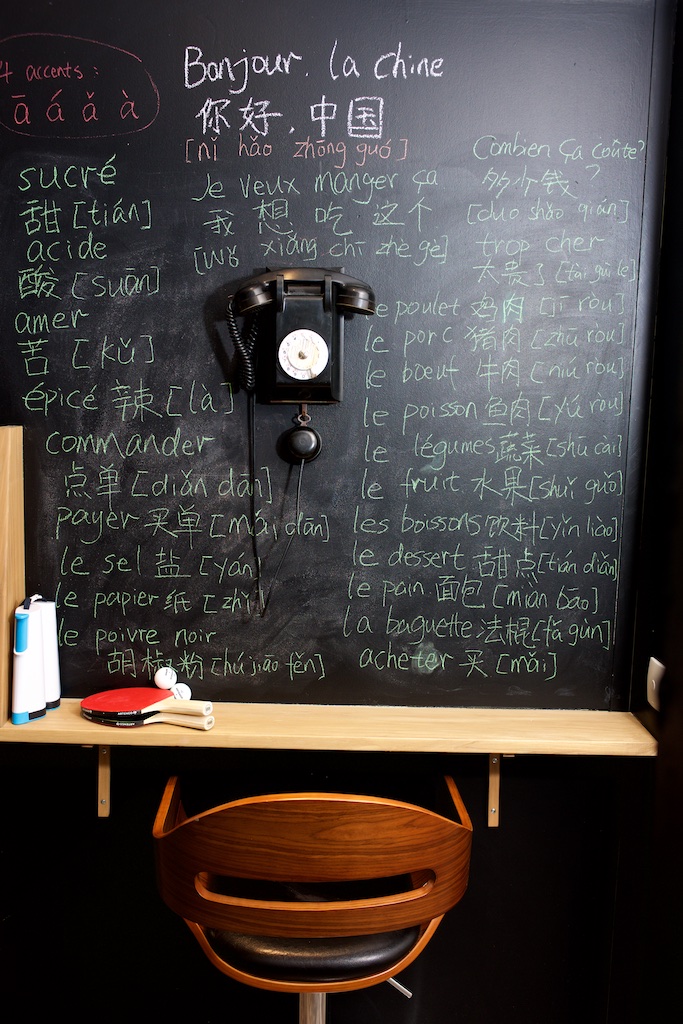 4 accents :
ā á ǎ à
Bonjour. la Chine
你好,中国
[nǐ hǎo zhōng guó]
sucré
甜[tián]
acide
酸[suān]
amer
苦[kǔ]
épicé 辣[là]
commander
点单[diǎn dān]
payer 买单[mǎi dān]
le sel 盐[yán
le papier 纸[zhǐ
le poivre noir
胡椒粉[hú jiāo fěn]
Je veux manger ça
我 想 吃 这 个
[wǒ xiǎng chī zhè gè]
Combien ça coûte?
多少钱?
[duo shǎo qián]
trop cher
太贵了[tài guì le]
le poulet 鸡肉[jī ròu]
le porc 猪肉[zhū ròu]
le boeuf 牛肉[niú ròu]
le poisson 鱼肉[yú ròu]
le légumes 蔬菜[shū cài]
le fruit 水果[shuǐ guǒ]
les boissons 饮料[yǐn liào]
le dessert 甜点[tián diǎn]
le pain 面包[miàn bāo]
la baguette 法棍[fǎ gùn]
acheter 买[mǎi]